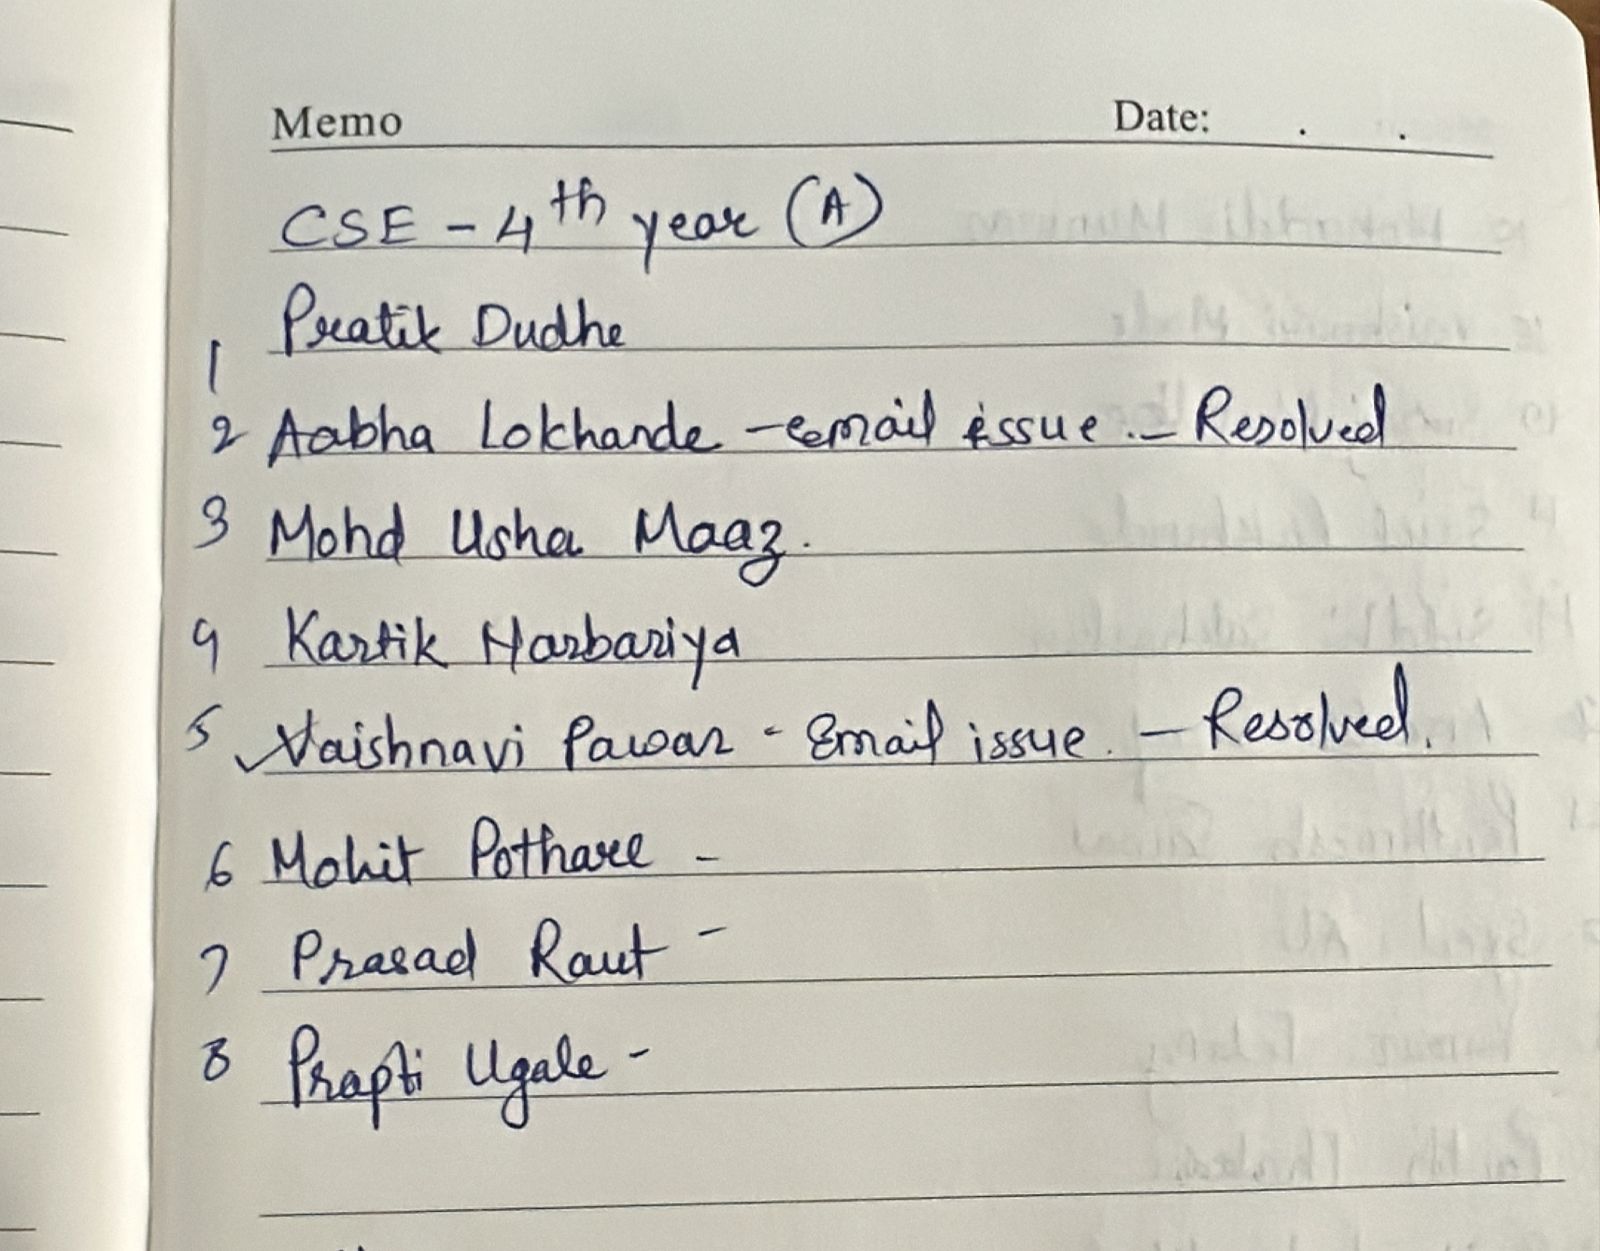 Memo Date: . .
CSE - 4th year (A)
1 Pratik Dudhe
2 Aabha Lokhande - email issue. - Resolved
3 Mohd Usha Maaz.
4 Kartik Harbariya
5 Vaishnavi Pawar - Email issue. - Resolved.
6 Mohit Pothare -
7 Prasad Raut -
8 Prapti Ugale -